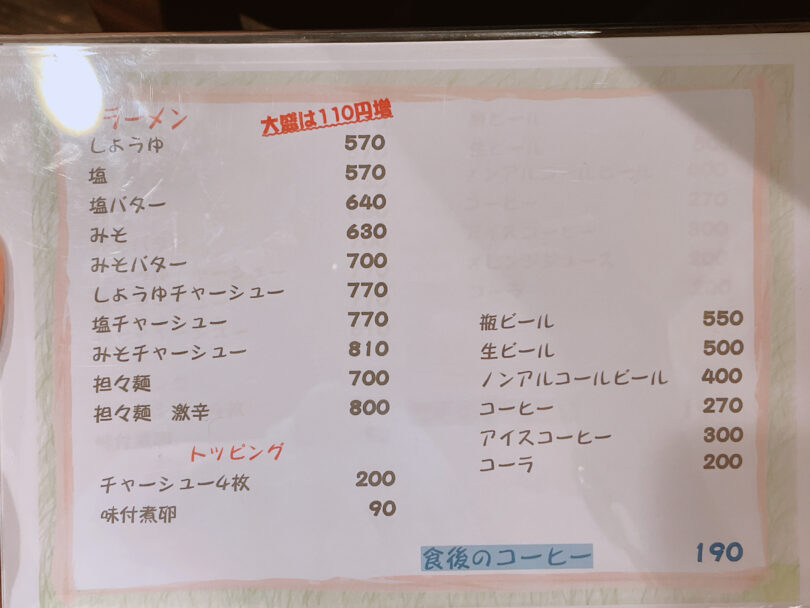 ラーメン 大盛は110円増
しょうゆ 570
塩 570
塩バター 640
みそ 630
みそバター 700
しょうゆチャーシュー 770
塩チャーシュー 770
みそチャーシュー 810
担々麺 700
担々麺 激辛 800
トッピング
チャーシュー4枚 200
味付煮卵 90
瓶ビール 550
生ビール 500
ノンアルコールビール 400
コーヒー 270
アイスコーヒー 300
コーラ 200
食後のコーヒー 190